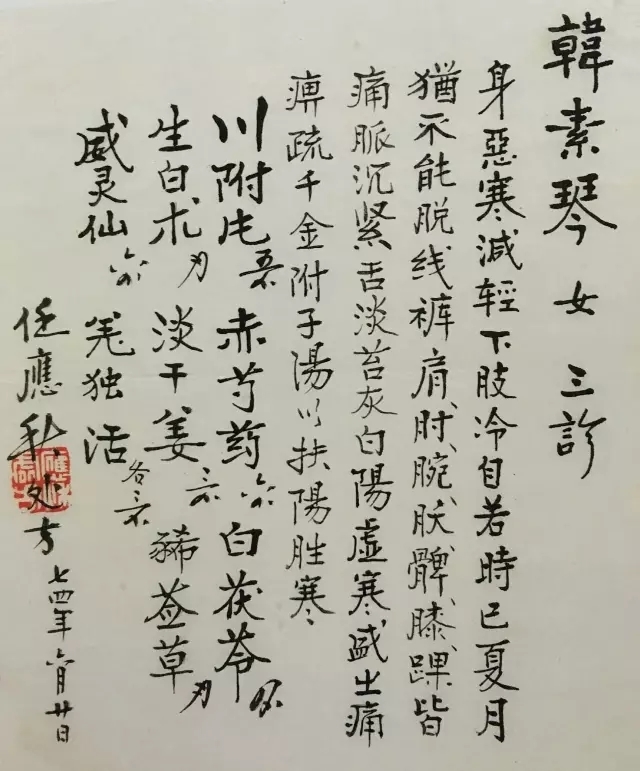 韓素琴 女 三診
身惡寒減輕下肢冷自若時已夏月
猶不能脱线裤肩、肘、腕、髀、膝、踝皆
痛脈沉緊舌淡苔灰白陽虚寒盛之痛
痹疏千金附子湯以扶陽胜寒
川附片 五钱 赤芍药 六钱 白茯苓
生白术 淡干姜 三钱 豨莶草
威灵仙 六钱 羌独活 各三钱
任應秋处方 七四年六月廿日